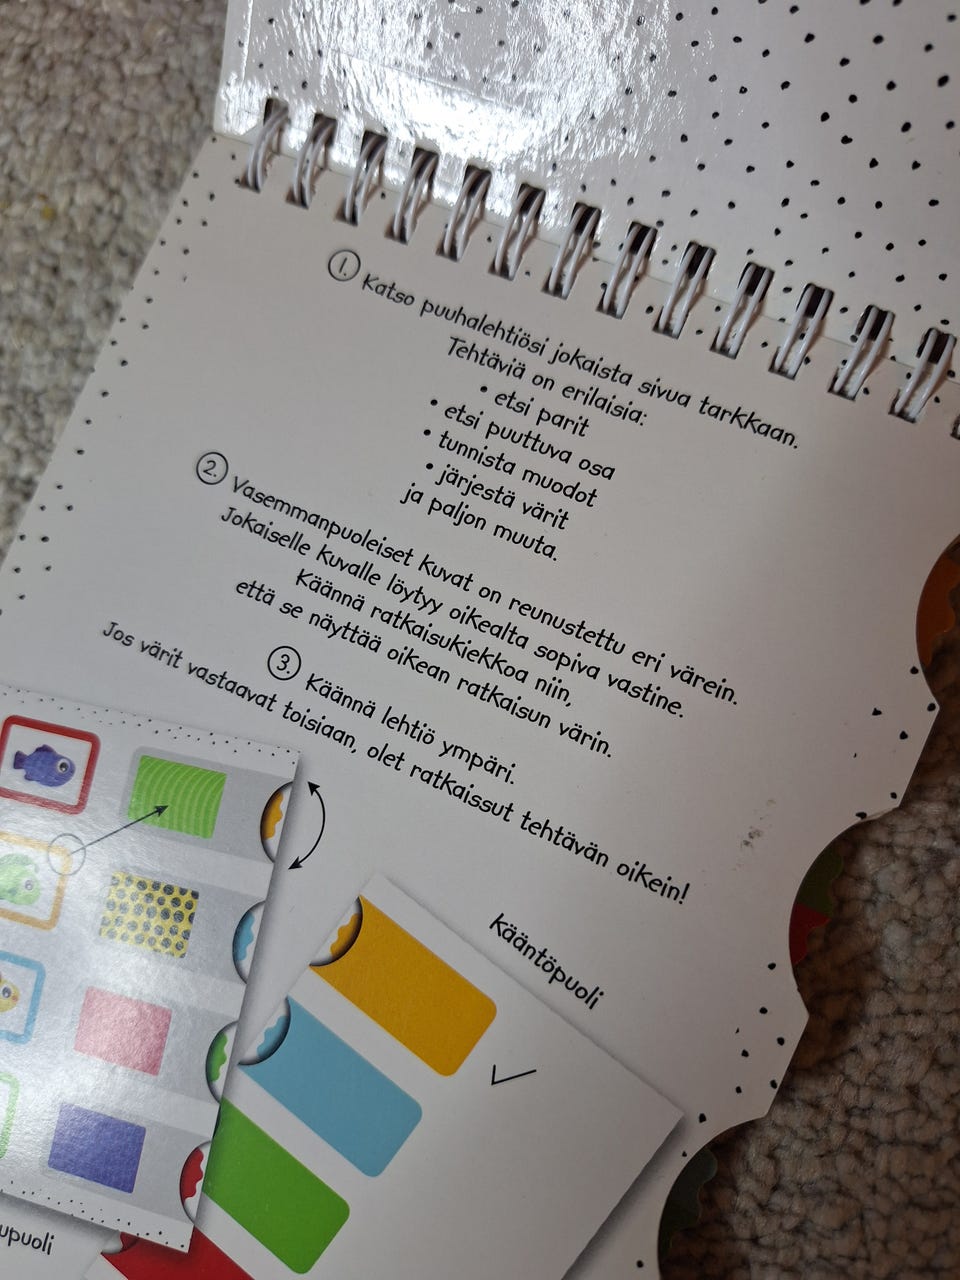 1. Katso puuhalehtiösi jokaista sivua tarkkaan.
Tehtäviä on erilaisia:
• etsi parit
• etsi puuttuva osa
• tunnista muodot
• järjestä värit
ja paljon muuta.
2. Vasemmanpuoleiset kuvat on reunustettu eri värein.
Jokaiselle kuvalle löytyy oikealta sopiva vastine.
Käännä ratkaisukiekkoa niin,
että se näyttää oikean ratkaisun värin.
3. Käännä lehtiö ympäri.
Jos värit vastaavat toisiaan, olet ratkaissut tehtävän oikein!
kääntöpuoli